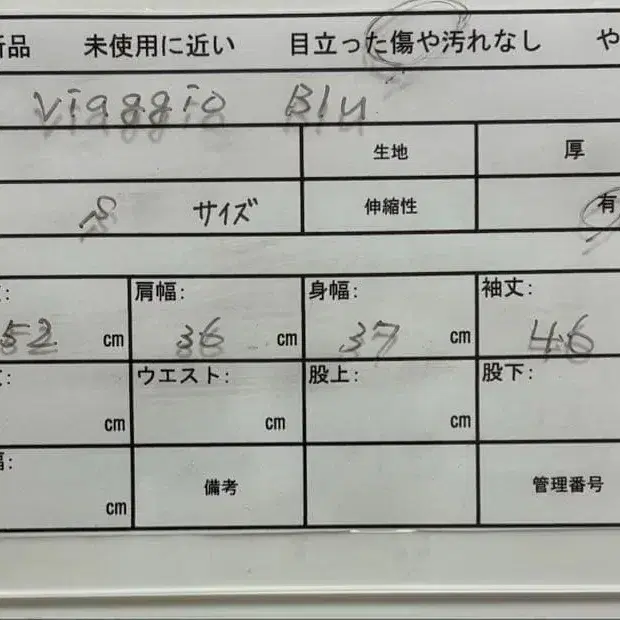 新品 未使用に近い 目立った傷や汚れなし や
viaggio Blu
生地 厚
S サイズ 伸縮性 有
: 肩幅: 身幅: 袖丈:
52 cm 36 cm 37 cm 46
: ウエスト: 股上: 股下:
cm cm cm
幅:
cm 備考 管理番号